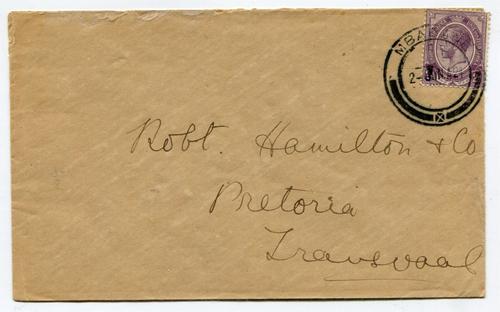 Robt. Hamilton & Co
Pretoria
Transvaal